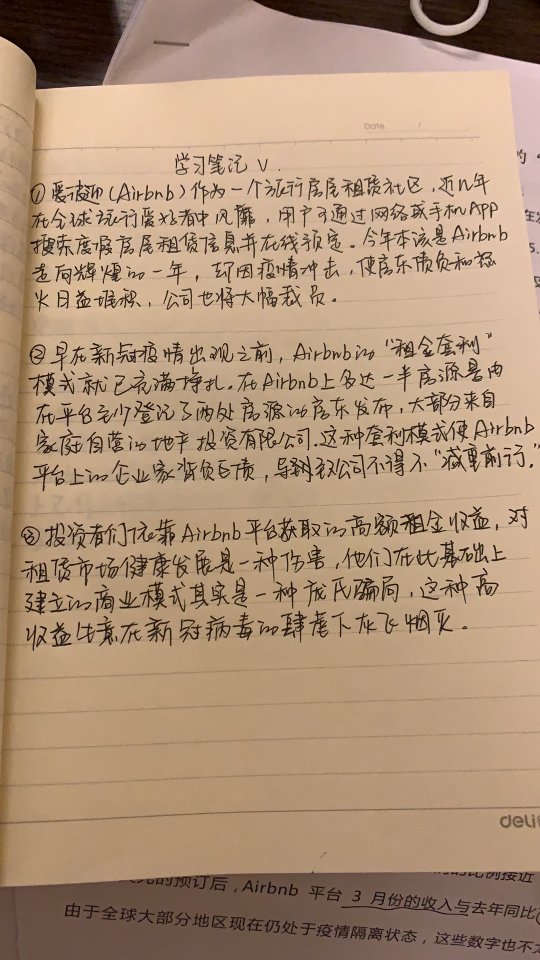 Date. /
学习笔记 V.
①爱彼迎(Airbnb)作为一个旅行房屋租赁社区，近几年
在全球旅行爱好者中风靡，用户可通过网络或手机APP
搜索度假房屋租赁信息并在线预定。今年本该是Airbnb
走向辉煌的一年，却因疫情冲击，使房东债负和怒
火日益堆积，公司也将大幅裁员。
②早在新冠疫情出现之前，Airbnb的“租金套利”
模式就已充满挣扎。在Airbnb上多达一半房源是由
在平台至少登记了两处房源的房东发布，大部分来自
家庭自营的地产投资有限公司。这种套利模式使Airbnb
平台上的企业家背负巨债，导致该公司不得不“减重前行。”
③投资者们依靠Airbnb平台获取的高额租金收益，对
租赁市场健康发展是一种伤害，他们在此基础上
建立的商业模式其实是一种庞氏骗局，这种高
收益生意在新冠病毒的肆虐下灰飞烟灭。
deli
的预订后，Airbnb 平台 3 月份的收入与去年同比
由于全球大部分地区现在仍处于疫情隔离状态，这些数字也不